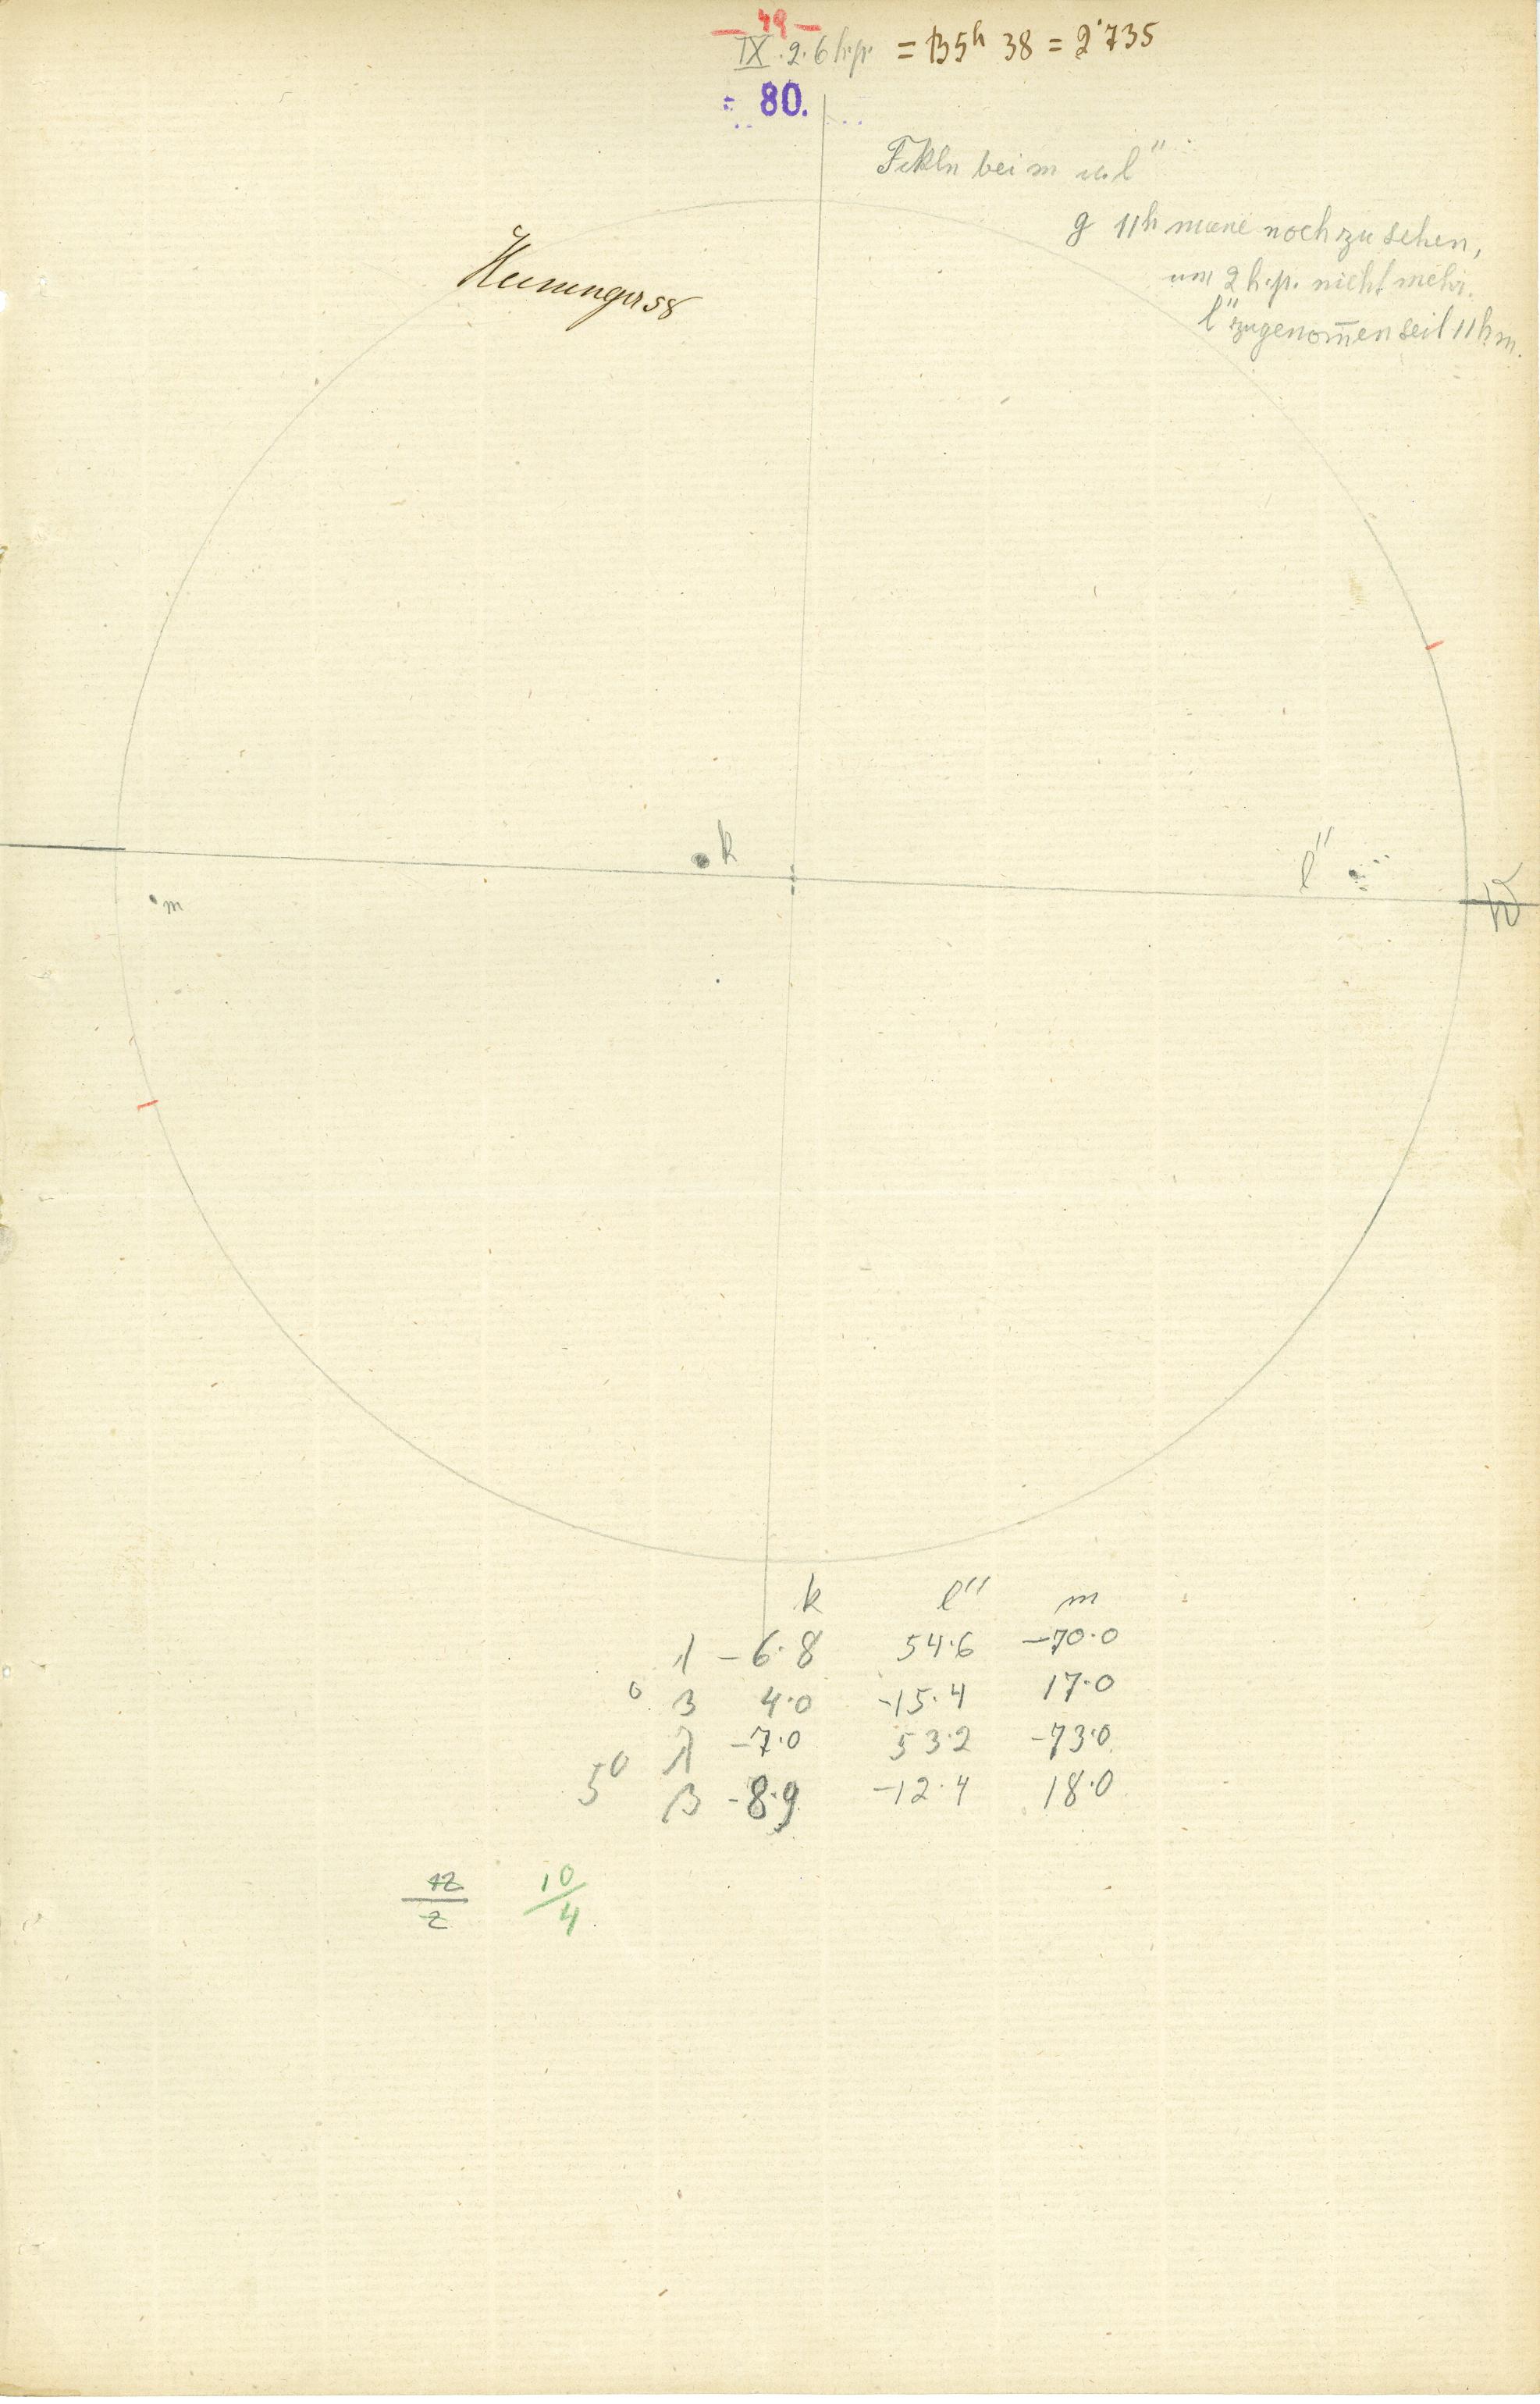 — 49 —
IX. 2. 6 h. p. = B 5h 38 = 2·735
80.
Fkln bei m u. l"
g 11h mane noch zu sehen,
um 2 h. p. nicht mehr.
l" zugenom̄en seit 11 h m.
k
l"
W
m
k l" m
λ -6·8 54·6 -70·0
0 β 4·0 -15·4 17·0
λ -7·0 53·2 -73·0
50 β -8·9 -12·4 18·0
12/2 10/4